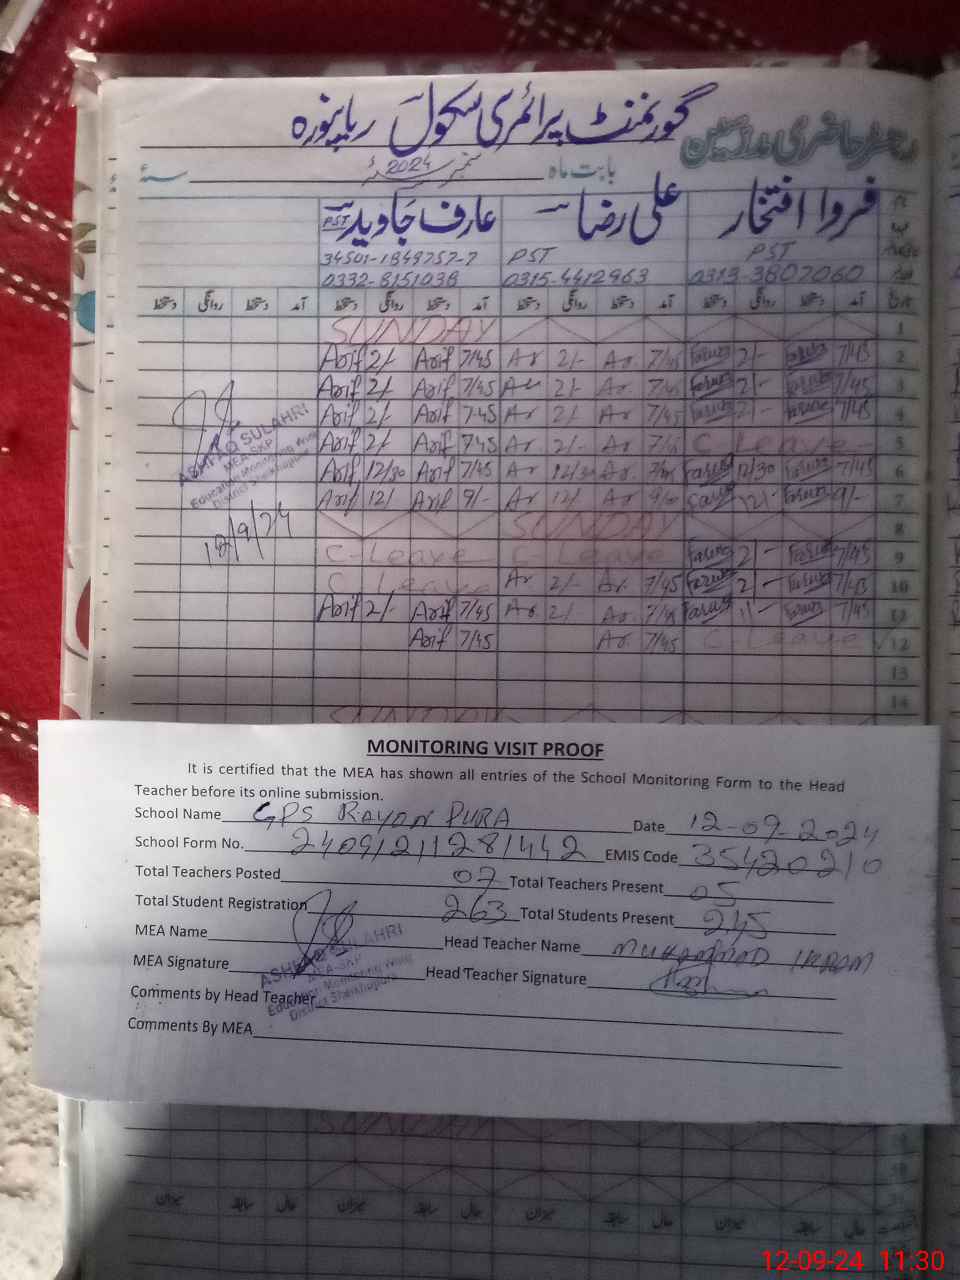 گورنمنٹ پرائمری سکول ریانپورہ
رجسٹر حاضری مدرسین
بابت ماہ ستمبر 2024ء
فروا افتخار علی رضا عارف جاوید PST
PST PST 34501-1849757-7
0313-3807060 0315-4412963 0332-8151038
تاریخ آمد دستخط روانگی دستخط آمد دستخط روانگی دستخط آمد دستخط روانگی دستخط آمد دستخط روانگی دستخط
SUNDAY 1
Arif 2/- Arif 7/45 Ar 2/- Ar. 7/45 Farwa 2/- Farwa 7/45 2
Arif 2/- Arif 7/45 Ar 2/- Ar. 7/45 Farwa 2/- Farwa 7/45 3
Arif 2/- Arif 7-45 Ar 2/- Ar 7/45 Farwa 2/- Farwa 7/45 4
Arif 2/- Arif 7/45 Ar 2/- Ar 7/45 C-Leave 5
Arif 12/30 Arif 7/45 Ar 12/30 Ar 7/45 Farwa 12/30 Farwa 7/45 6
Arif 12/ Arif 9/- Ar 12/ Ar 9/- Farwa 12/- Farwa 9/- 7
SUNDAY 8
C-Leave C-Leave Farwa 2/- Farwa 7/45 9
C-Leave Ar 2/- Ar. 7/45 Farwa 2/- Farwa 7/45 10
Arif 2/- Arif 7/45 Ar. 2/- Ar. 7/45 Farwa 11/- Farwa 7/45 11
Arif 7/45 Ar. 7/45 C-Leave 12
13
14
SUNDAY
ASHFAQ SULAHRI
MEA-SKP
Education Monitoring Wing
District Sheikhupura
12/9/24
MONITORING VISIT PROOF
It is certified that the MEA has shown all entries of the School Monitoring Form to the Head
Teacher before its online submission.
School Name GPS RAYAN PURA Date 12-09-2024
School Form No. 24091211281442 EMIS Code 35420210
Total Teachers Posted 07 Total Teachers Present 05
Total Student Registration 263 Total Students Present 245
MEA Name Head Teacher Name MUHAMMAD IKRAM
MEA Signature Head Teacher Signature
Comments by Head Teacher
Comments By MEA
ASHFAQ SULAHRI
MEA-SKP
Education Monitoring Wing
District Sheikhupura
SUNDAY
میزان سابقہ حال میزان سابقہ حال میزان سابقہ حال میزان سابقہ حال
12-09-24 11:30